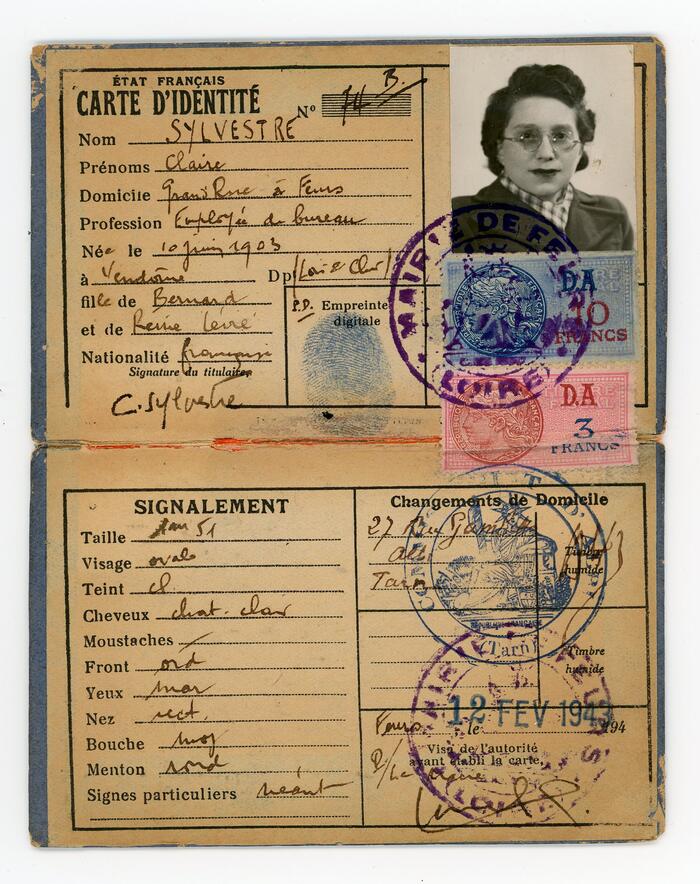 ÉTAT FRANÇAIS
CARTE D'IDENTITÉ
N° 74 B.
Nom SYLVESTRE
Prénoms Claire
Domicile Grand Rue à Feurs
Profession Employée de bureau
Née le 10 juin 1903
à Vendôme Dpt (Loir & Cher)
fille de Bernard
et de
Nationalité française
Signature du titulaire
C. Sylvestre
P.D. Empreinte
digitale
MAIRIE DE FEURS
(LOIRE)
D.A
10
FRANCS
D.A
3
FRANCS
SIGNALEMENT
Taille 1m 51
Visage ovale
Teint cl
Cheveux chat. clair
Moustaches
Front ord
Yeux mar
Nez rect.
Bouche moy
Menton rond
Signes particuliers néant
Changements de Domicile
27 Rue
Albi
Tarn
Timbre
humide
RÉPUBLIQUE FRANÇAISE
(Tarn)
Timbre
humide
Feurs le 12 FEV 1943 194
Visa de l'autorité
ayant établi la carte,